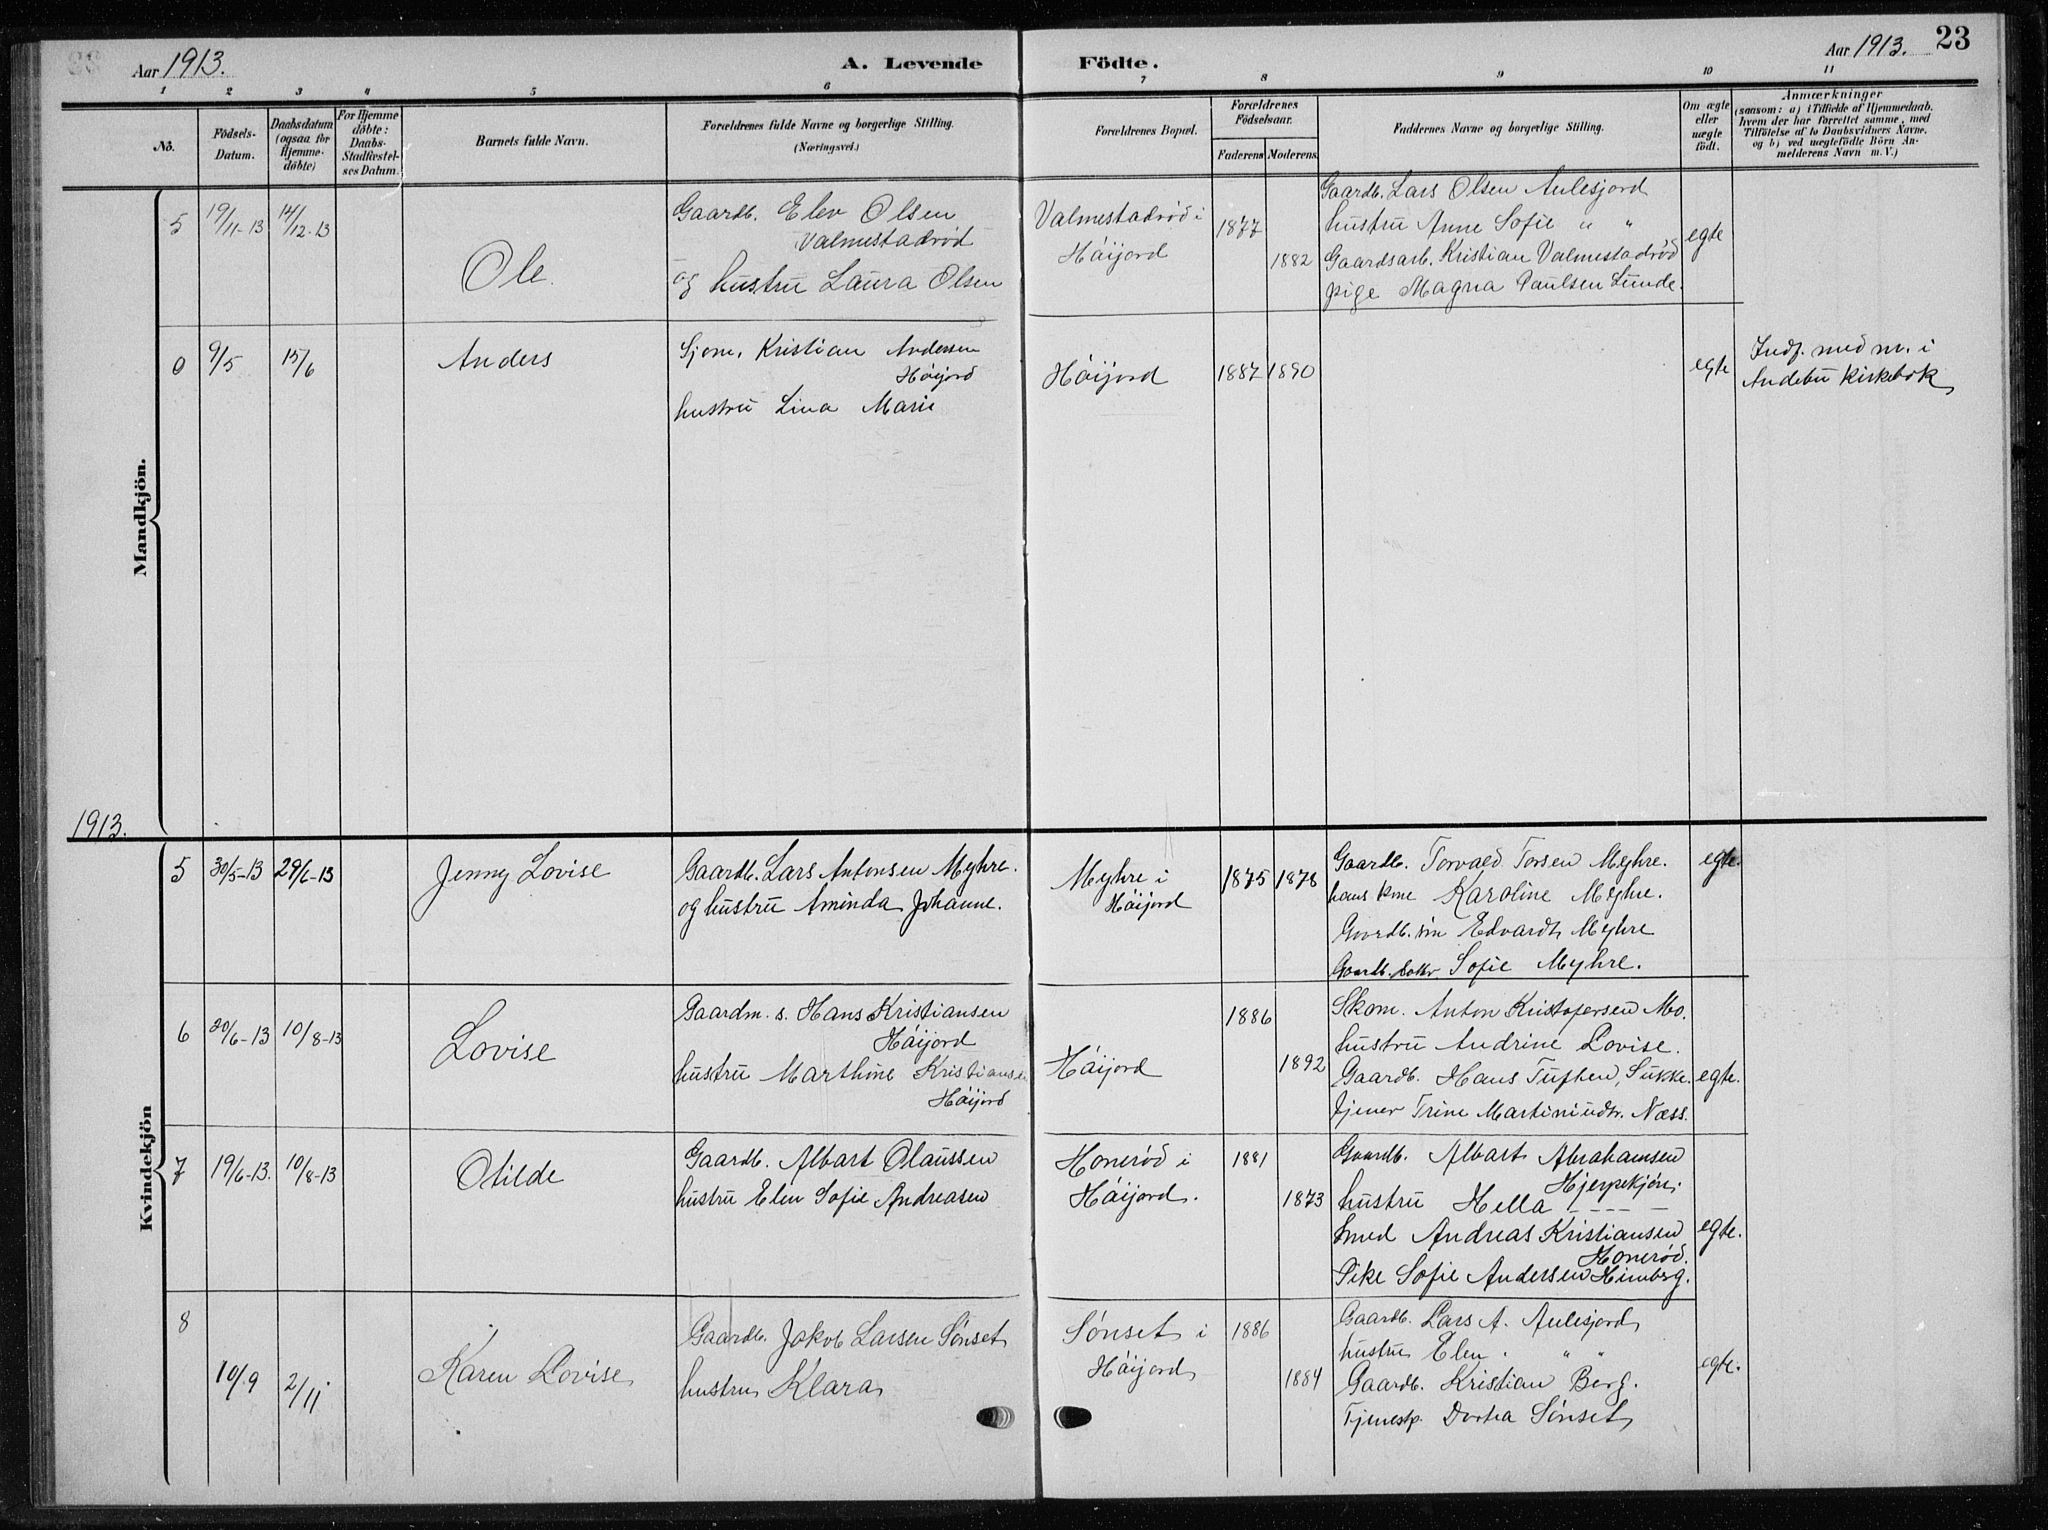 Aar 1913.
A. Levende Födte.
Aar 1913. 23
1 2 3 4 5 6 7 8 9 10 11
No.
Födsels-
Datum.
Daabsdatum
(ogsaa for
Hjemme-
döbte)
For Hjemme
döbte:
Daabs-
Stadfæstel-
ses Datum.
Barnets fulde Navn.
Forældrenes fulde Navne og borgerlige Stilling.
(Næringsvei.)
Forældrenes Bopæl.
Forældrenes
Födselsaar.
Faderens Moderens
Faddernes Navne og borgerlige Stilling.
Om ægte
eller
uægte
født.
Anmærkninger
(saasom: a) i Tilfælde af Hjemmedaab.
hvem der har forrettet samme, med
Tilföielse af to Daabsvidners Navne.
og b) ved uægtefödte Börn An-
melderens Navn m. V.)
Mandkjön.
5 19/11-13 14/12-13
Ole.
Gaardb. Elev Olsen
Valmestadrød
og hustru Laura Olsen
Valmestadrød i
Høijord
1877
1882
Gaardb. Lars Olsen Aulesjord
hustru Anne Sofie " "
Gaardsarb. Kristian Valmestadrød
pige Magna Paulsen Lunde.
egte
0 9/5 15/6
Anders
Sjom. Kristian Andersen
Høijord
hustru Lina Marie
Høijord
1887 1890
egte
Indf. med nr. i
Andebu Kirkebok
1913.
Kvindekjön
5 30/5-13 29/6-13
Jenny Lovise
Gaardb. Lars Antonsen Myhre.
og hustru Aminda Johanne.
Myhre i
Høijord
1875 1878
Gaardb. Torvald Torsen Myhre.
hans kone Karoline Myhre.
Gaardb. søn Edvardt Myhre
Gaardb. datr Sofie Myhre.
egte.
6 20/6-13 10/8-13
Lovise
Gaardm. s. Hans Kristiansen
Høijord
hustru Marthine Kristiansen
Høijord
Høijord
1886
1892
Skom. Anton Kristofersen Mo.
hustru Andrine Lovise.
Gaardb. Hans Tuften, Sukke.
tjener Trine Martiniusdtr. Næss.
egte.
7 19/6-13. 10/8-13
Otilde
Gaardb. Albart Olaussen
hustru Elen Sofie Andreasen
Honerød i
Høijord.
1881
1873
Gaardb. Albart Abrahamsen
Hjerpekjøn;
hustru Hella - - - - -
Smed Andreas Kristiansen
Honerød.
Pike Sofie Andersen Himberg.
egte.
8
10/9 2/11
Karen Lovise
Gaardb. Jakob Larsen Sønset
hustru Klara
Sønset i
Høijord
1886
1884
Gaardb. Lars A. Aulesjord
hustru Elen " "
Gaardb. Kristian Berg.
Tjenestp. Dortea Sønset
egte.